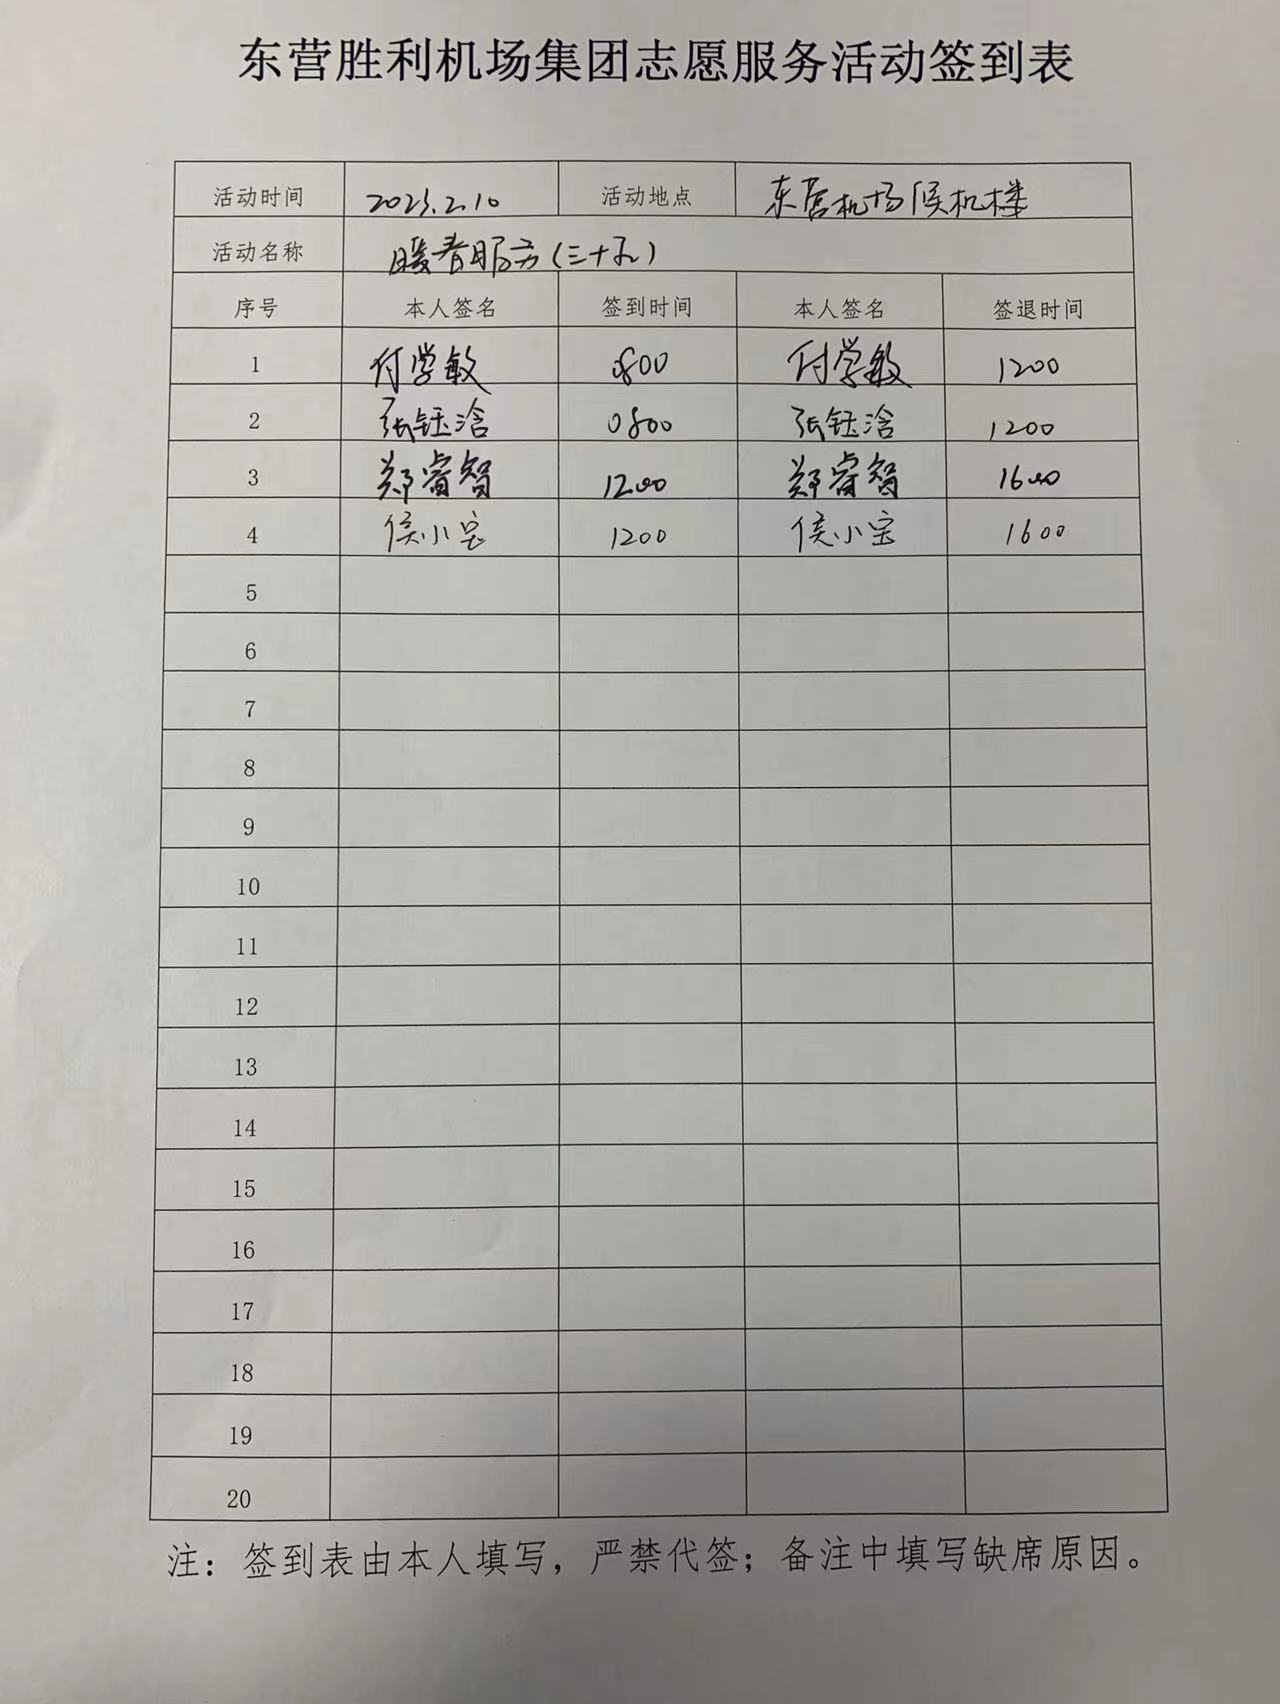 东营胜利机场集团志愿服务活动签到表
活动时间 2023.2.10 活动地点 东营机场候机楼
活动名称 暖春服务(三十五)
序号 本人签名 签到时间 本人签名 签退时间
1 付学敏 0800 付学敏 1200
2 张钰浛 0800 张钰浛 1200
3 郑睿智 1200 郑睿智 1600
4 侯小宝 1200 侯小宝 1600
5
6
7
8
9
10
11
12
13
14
15
16
17
18
19
20
注：签到表由本人填写，严禁代签；备注中填写缺席原因。